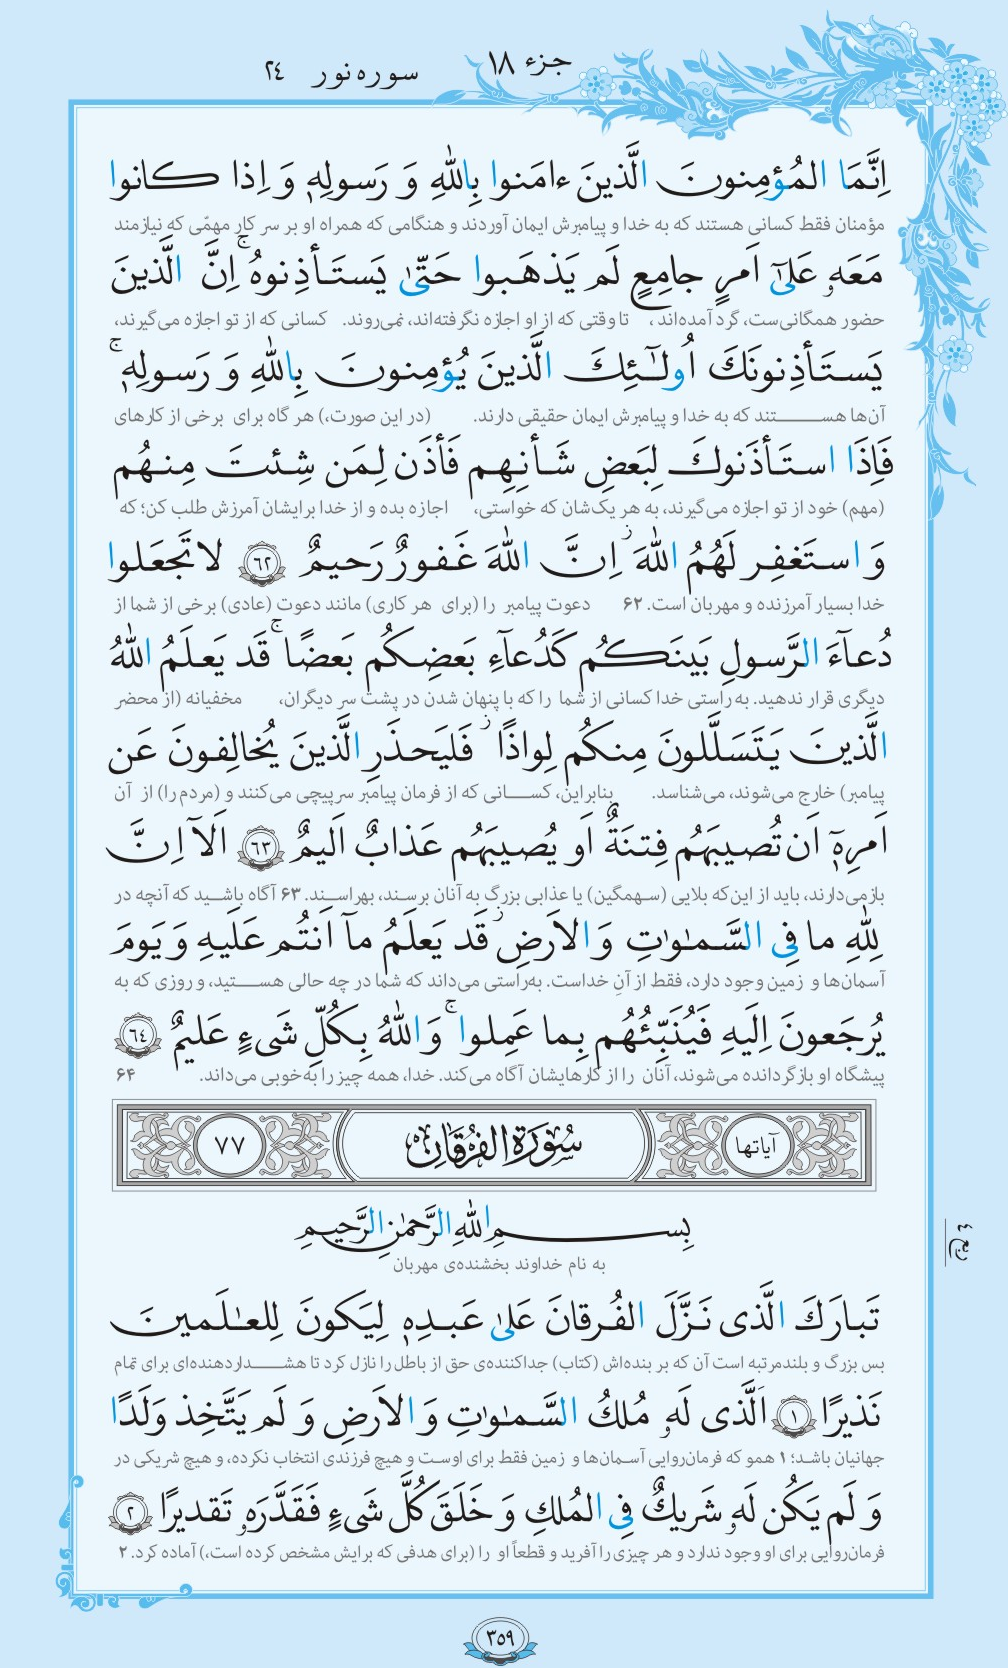 جزء ۱۸
سوره نور ۲۴
اِنَّمَا المُؤمِنونَ الَّذینَ ءامَنوا بِاللّٰهِ وَ رَسولِهٖ وَ اِذا کانوا
مؤمنان فقط کسانی هستند که به خدا و پیامبرش ایمان آوردند و هنگامی که همراه او بر سر کار مهمّی که نیازمند
مَعَهٗ عَلیٰٓ اَمرٍ جامِعٍ لَم یَذهَبوا حَتّیٰ یَستَأذِنوهُ ۚ اِنَّ الَّذینَ
حضور همگانی‌ست، گرد آمده‌اند، تا وقتی که از او اجازه نگرفته‌اند، نمی‌روند. کسانی که از تو اجازه می‌گیرند،
یَستَأذِنونَکَ اُولٰٓئِکَ الَّذینَ یُؤمِنونَ بِاللّٰهِ وَ رَسولِهٖ ۚ
آن‌ها هستند که به خدا و پیامبرش ایمان حقیقی دارند. (در این صورت،) هر گاه برای برخی از کارهای
فَاِذَا استَأذَنوکَ لِبَعضِ شَأنِهِم فَأذَن لِمَن شِئتَ مِنهُم
(مهم) خود از تو اجازه می‌گیرند، به هر یک‌شان که خواستی، اجازه بده و از خدا برایشان آمرزش طلب کن؛ که
وَ استَغفِر لَهُمُ اللّٰهَ ز اِنَّ اللّٰهَ غَفورٌ رَحیمٌ ﴿٦٢﴾ لا تَجعَلوا
خدا بسیار آمرزنده و مهربان است. ۶۲ دعوت پیامبر را (برای هر کاری) مانند دعوت (عادی) برخی از شما از
دُعآءَ الرَّسولِ بَینَکُم کَدُعآءِ بَعضِکُم بَعضًا ۚ قَد یَعلَمُ اللّٰهُ
دیگری قرار ندهید. به‌راستی خدا کسانی از شما را که با پنهان شدن در پشت سر دیگران، مخفیانه (از محضر
الَّذینَ یَتَسَلَّلونَ مِنکُم لِواذًا ز فَلیَحذَرِ الَّذینَ یُخالِفونَ عَن
پیامبر) خارج می‌شوند، می‌شناسد. بنابراین، کسانی که از فرمان پیامبر سرپیچی می‌کنند و (مردم را) از آن
اَمرِهٖٓ اَن تُصیبَهُم فِتنَةٌ اَو یُصیبَهُم عَذابٌ اَلیمٌ ﴿٦٣﴾ اَلآ اِنَّ
بازمی‌دارند، باید از این‌که بلایی (سهمگین) یا عذابی بزرگ به آنان برسند، بهراسند. ۶۳ آگاه باشید که آنچه در
لِلّٰهِ ما فِی السَّمٰوٰتِ وَ الاَرضِ ز قَد یَعلَمُ مآ اَنتُم عَلَیهِ وَ یَومَ
آسمان‌ها و زمین وجود دارد، فقط از آنِ خداست. به‌راستی می‌داند که شما در چه حالی هستید، و روزی که به
یُرجَعونَ اِلَیهِ فَیُنَبِّئُهُم بِما عَمِلوا ۚ وَ اللّٰهُ بِکُلِّ شَیءٍ عَلیمٌ ﴿٦٤﴾
پیشگاه او بازگردانده می‌شوند، آنان را از کارهایشان آگاه می‌کند. خدا، همه چیز را به‌خوبی می‌داند. ۶۴
آیاتها سُورَةُ الفُرقَانِ ٧٧
بِسمِ اللّٰهِ الرَّحمٰنِ الرَّحیمِ
ربع ٤
به نام خداوند بخشنده‌ی مهربان
تَبارَکَ الَّذی نَزَّلَ الفُرقانَ عَلیٰ عَبدِهٖ لِیَکونَ لِلعٰلَمینَ
بس بزرگ و بلندمرتبه است آن که بر بنده‌اش (کتاب) جداکننده‌ی حق از باطل را نازل کرد تا هشداردهنده‌ای برای تمام
نَذیرًا ﴿١﴾ اَلَّذی لَهٗ مُلکُ السَّمٰوٰتِ وَ الاَرضِ وَ لَم یَتَّخِذ وَلَدًا
جهانیان باشد؛ ۱ همو که فرمان‌روایی آسمان‌ها و زمین فقط برای اوست و هیچ فرزندی انتخاب نکرده، و هیچ شریکی در
وَ لَم یَکُن لَهٗ شَریکٌ فِی المُلکِ وَ خَلَقَ کُلَّ شَیءٍ فَقَدَّرَهٗ تَقدیرًا ﴿٢﴾
فرمان‌روایی برای او وجود ندارد و هر چیزی را آفرید و قطعاً او را (برای هدفی که برایش مشخص کرده است،) آماده کرد. ۲
۳۵۹